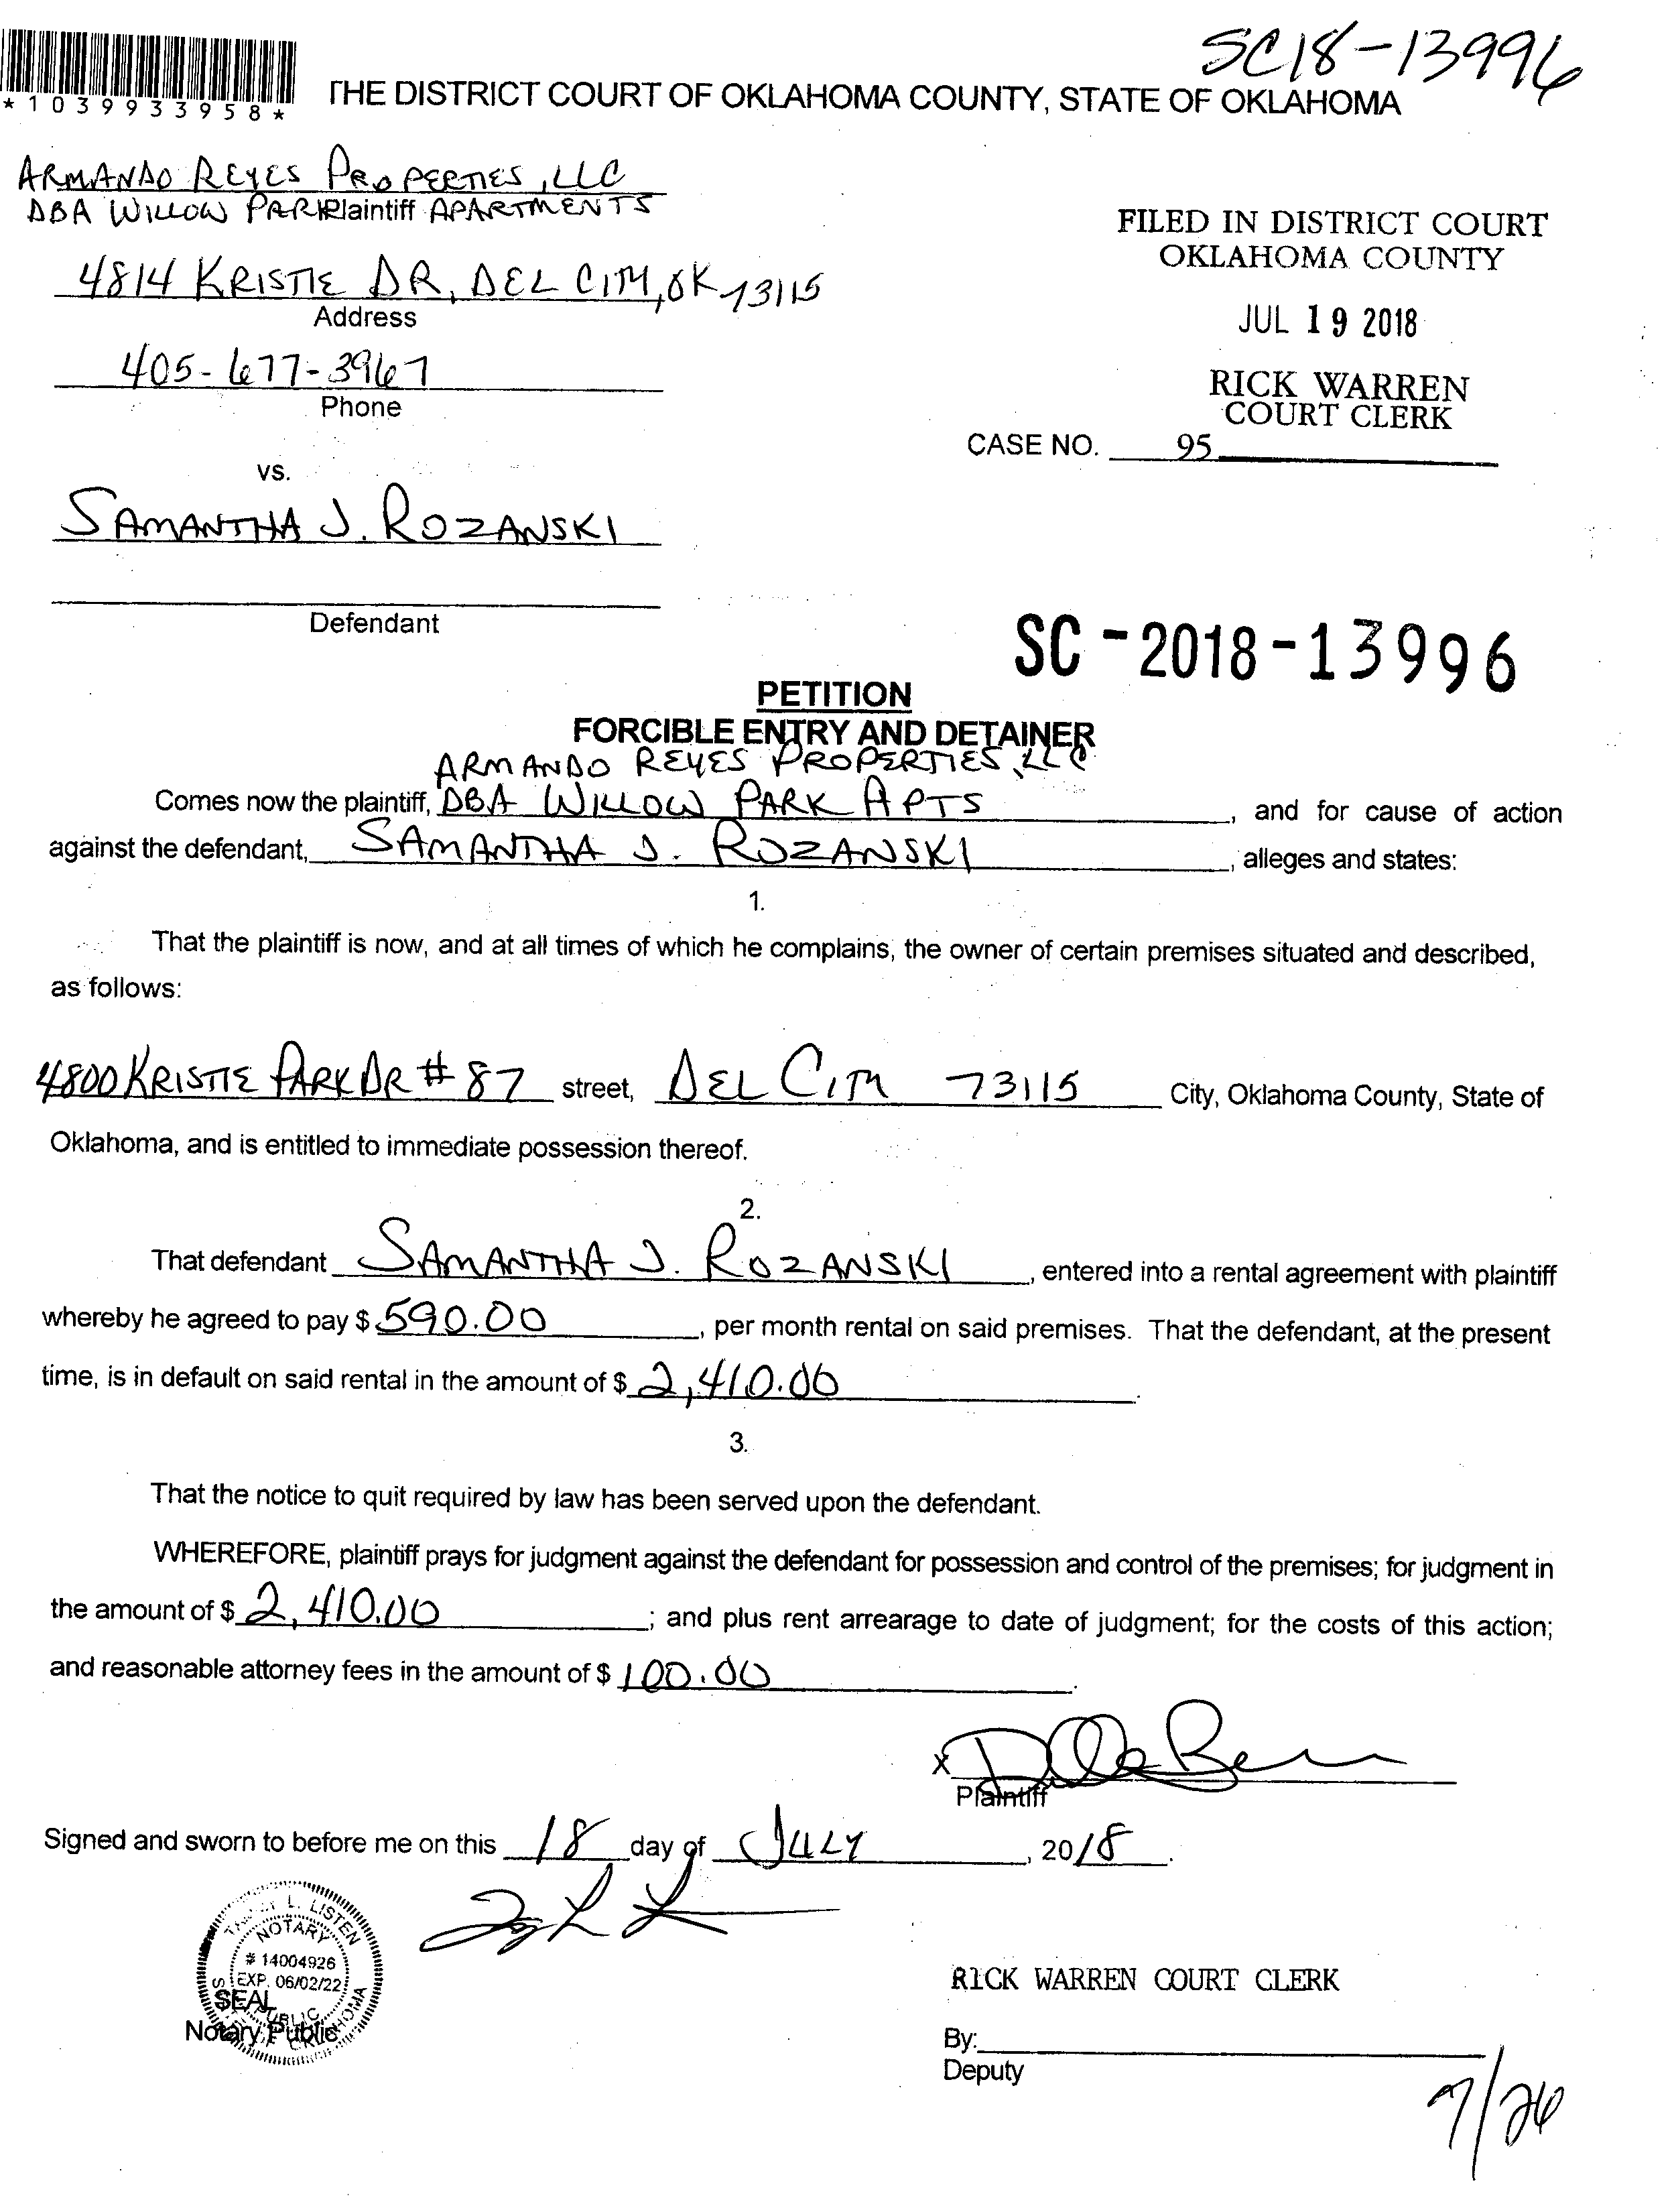 SC18-13996
*1039933958*
THE DISTRICT COURT OF OKLAHOMA COUNTY, STATE OF OKLAHOMA
ARMANDO REYES PROPERTIES, LLC
DBA WILLOW PARK Plaintiff APARTMENTS
4814 KRISTIE DR, DEL CITY, OK 73115
Address
405-677-3967
Phone
FILED IN DISTRICT COURT
OKLAHOMA COUNTY
JUL 19 2018
RICK WARREN
COURT CLERK
CASE NO. 95
vs.
SAMANTHA J. ROZANSKI
Defendant
SC-2018-13996
PETITION
FORCIBLE ENTRY AND DETAINER
ARMANDO REYES PROPERTIES, LLC
Comes now the plaintiff, DBA WILLOW PARK APTS, and for cause of action
against the defendant, SAMANTHA J. ROZANSKI, alleges and states:
1.
That the plaintiff is now, and at all times of which he complains, the owner of certain premises situated and described,
as follows:
4800 KRISTIE PARK DR # 87 street, DEL CITY 73115 City, Oklahoma County, State of
Oklahoma, and is entitled to immediate possession thereof.
2.
That defendant SAMANTHA J. ROZANSKI, entered into a rental agreement with plaintiff
whereby he agreed to pay $ 590.00, per month rental on said premises. That the defendant, at the present
time, is in default on said rental in the amount of $ 2,410.00.
3.
That the notice to quit required by law has been served upon the defendant.
WHEREFORE, plaintiff prays for judgment against the defendant for possession and control of the premises; for judgment in
the amount of $ 2,410.00; and plus rent arrearage to date of judgment; for the costs of this action;
and reasonable attorney fees in the amount of $ 100.00.
X
Plaintiff
Signed and sworn to before me on this 18 day of JULY, 2018.
L. LISTEN
NOTARY
# 14004926
EXP. 06/02/22
PUBLIC
OKLAHOMA
SEAL
Notary Public
RICK WARREN COURT CLERK
By:
Deputy
7/26